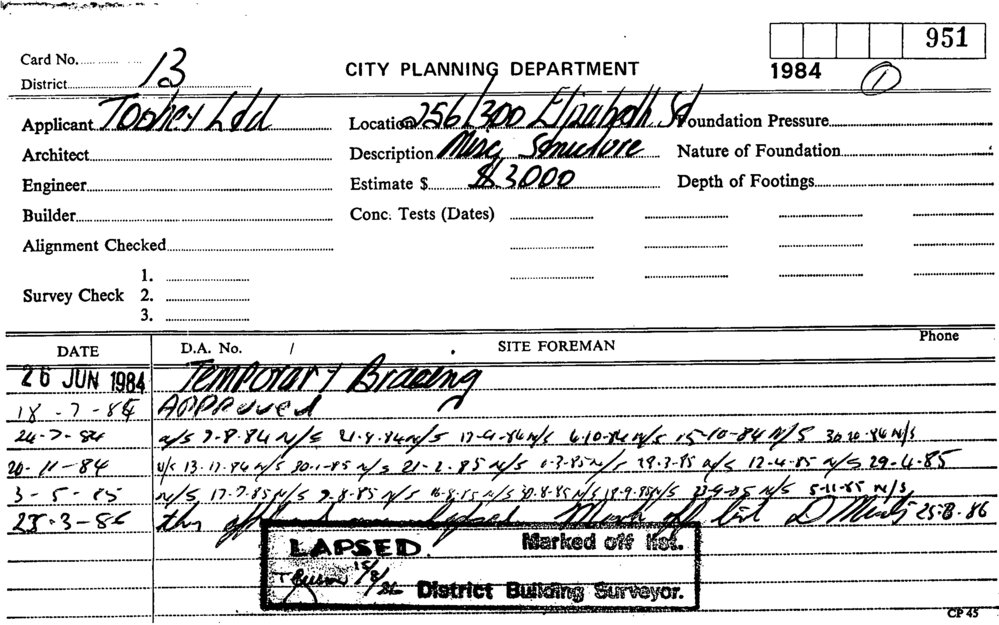 951
Card No. 13
CITY PLANNING DEPARTMENT
1984
1
District
Applicant Toohey Ltd
Location 256/300 Elizabeth St
Foundation Pressure
Architect
Description Misc Structure
Nature of Foundation
Engineer
Estimate $ $3000
Depth of Footings
Builder
Conc. Tests (Dates)
Alignment Checked
1.
Survey Check 2.
3.
DATE D.A. No. / SITE FOREMAN Phone
26 JUN 1984 Temporary Bracing
18-7-84 APPROVED
24-7-84 N/S 7-8-84 N/S N/S N/S 4-10-84 N/S 15-10-84 N/S 30.10.84 N/S
20-11-84 N/S 13.12.84 N/S 30-1-85 N/S 21-2.85 N/S 1-3-85 N/S 19.3.85 N/S 12-4-85 N/S 29-4-85
3-5-85 N/S 17-7-85 N/S 9-8-85 N/S N/S 30-8-85 N/S 18-9-85 N/S N/S 5-11-85 N/S
25-3-86 this lapsed Mark off list 25-3-86
LAPSED. Marked off list.
District Building Surveyor.
CP 45